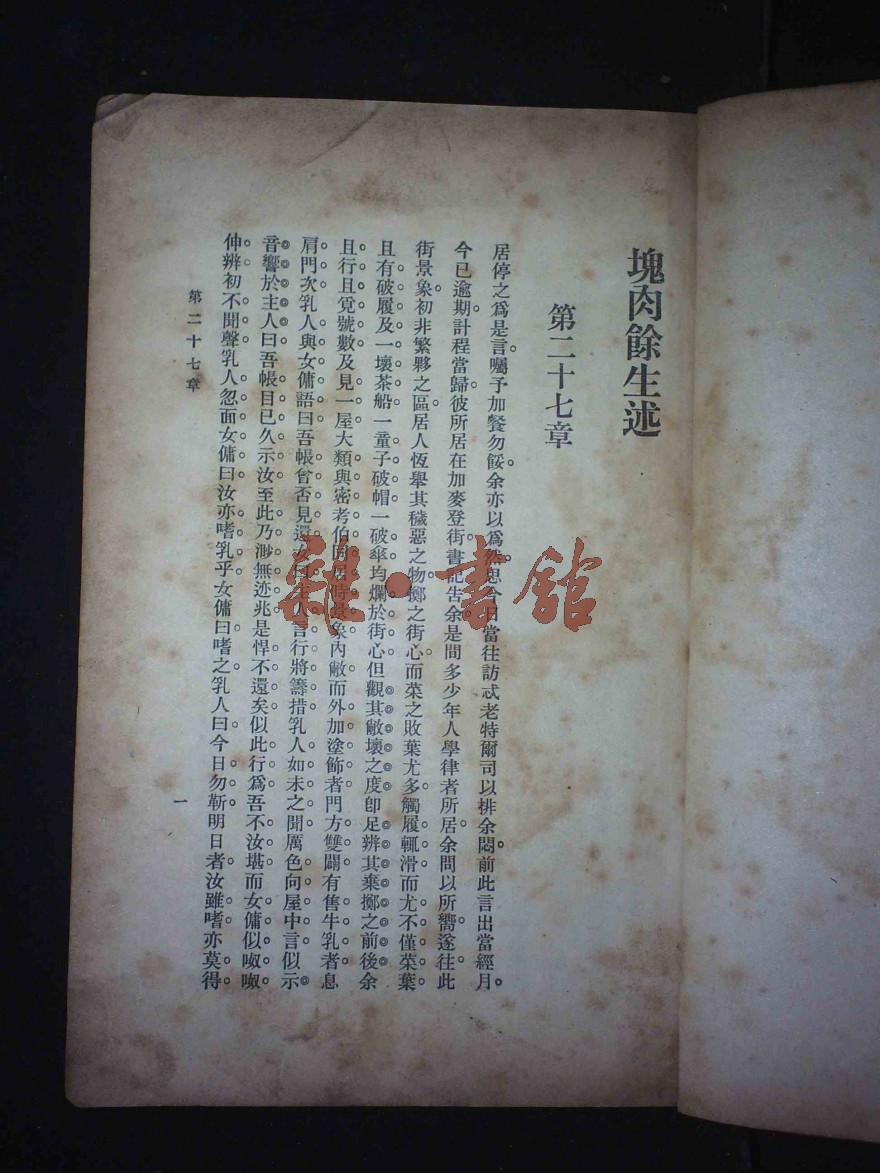 塊肉餘生述
第二十七章
居停之爲是言。囑予加餐勿餒。余亦以爲然。思今日當往訪忒老特爾司以排余悶。前此言出當經月。
今已逾期。計程當歸。彼所居在加麥登街。書記告余。是間多少年人學律者所居。余問以所嚮。遂往。此
街景象。初非繁夥之區。居人恆舉其穢惡之物。擲之街心。而菜之敗葉尤多。觸履輒滑。而尤不僅菜葉
且有破履及一壞茶船。一童子破帽。一破傘。均爛於街心。但觀其敝壞之度。卽足辨其棄擲之前後。余
且行且覓號數。及見一屋。大類與密考伯同居時景象。內敝而外加塗飾者。門方雙闢。有售牛乳者息
肩門次。乳人與女傭語曰。吾帳曾否見還。女曰。主人言行將籌措。乳人如未之聞。厲色向屋中言。似示
音響於主人曰。吾帳目已久示汝。至此乃渺無迹兆。是悍不還矣。似此行爲。吾不汝堪。而女傭似呶呶
伸辨。初不聞聲。乳人忽面女傭曰。汝亦嗜乳乎。女傭曰。嗜之。乳人曰。今日勿靳。明日者汝雖嗜亦莫得
第二十七章
一
雜·書館